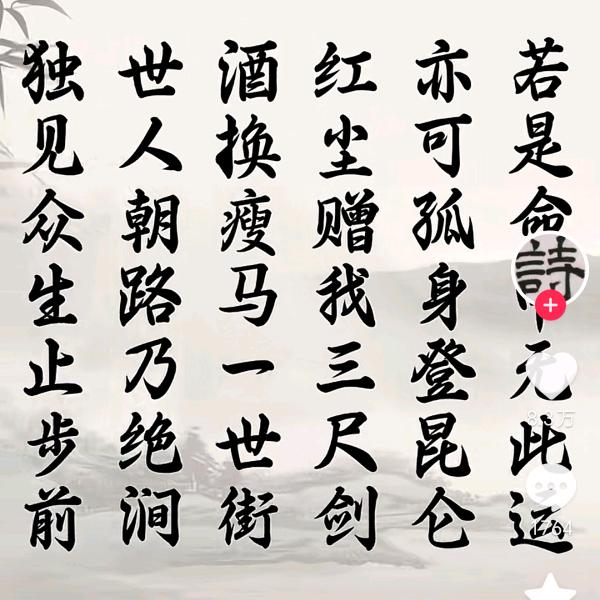 若是命无此运
亦可孤身登昆仑
红尘赠我三尺剑
酒换瘦马一世街
世人朝路乃绝涧
独见众生止步前
詩
8.3万
1764